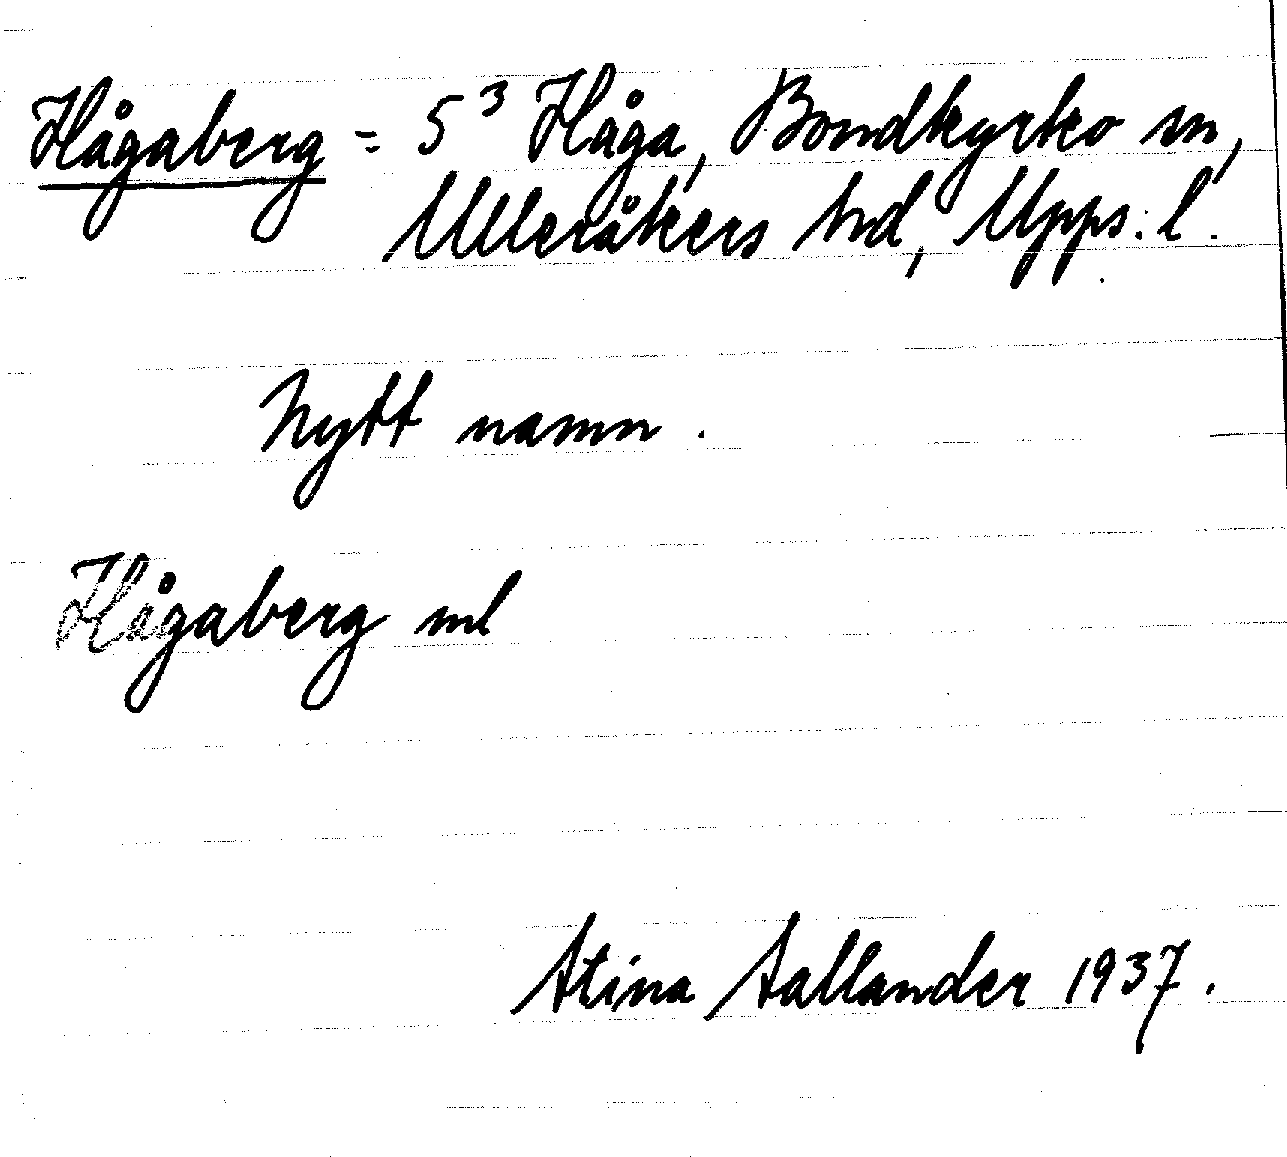 Hågaberg = 5³ Håga, Bondkyrko sn,
Ulleråkers hd, Upps. l.
Nytt namn.
Hågaberg ml
Stina Sallander 1937.